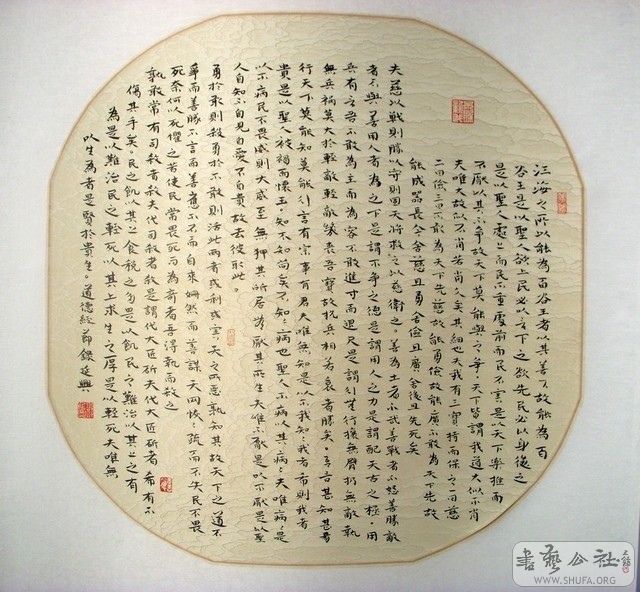 江海之所以能為百谷王者以其善下故能為百
谷王是以聖人欲上民必以言下之欲先民必以身後之
是以聖人處上而民不重處前而民不害是以天下樂推而
不厭以其不爭故天下莫能與之爭天下皆謂我道大似不肖
夫唯大故似不肖若肖久矣其細也夫我有三寶持而保之一曰慈
二曰儉三曰不敢為天下先慈故能勇儉故能廣不敢為天下先故
能成器長今舍慈且勇舍儉且廣舍後且先死矣
夫慈以戰則勝以守則固天將救之以慈衛之善為士者不武善戰者不怒善勝敵
者不與善用人者為之下是謂不爭之德是謂用人之力是謂配天古之極用
兵有言吾不敢為主而為客不敢進寸而退尺是謂行無行攘無臂扔無敵執
無兵禍莫大於輕敵輕敵幾喪吾寶故抗兵相若哀者勝矣吾言甚易知甚易
行天下莫能知莫能行言有宗事有君夫唯無知是以不我知知我者希則我者
貴是以聖人被褐而懷玉知不知尚矣不知知病也聖人不病以其病病夫唯病病是
以不病民不畏威則大威至無狎其所居無厭其所生夫唯不厭是以不厭是以聖
人自知不自見自愛不自貴故去彼取此
勇於敢則殺勇於不敢則活此兩者或利或害天之所惡孰知其故天之道不
爭而善勝不言而善應不召而自來繟然而善謀天網恢恢疏而不失民不畏
死奈何以死懼之若使民常畏死而為奇者吾得執而殺之
孰敢常有司殺者殺夫代司殺者殺是謂代大匠斲夫代大匠斲者希有不
傷其手矣民之飢以其上食稅之多是以飢民之難治以其上之有
為是以難治民之輕死以其上求生之厚是以輕死夫唯無
以生為者是賢於貴生道德經節錄廷興
書藝公社
WWW.SHUFA.ORG